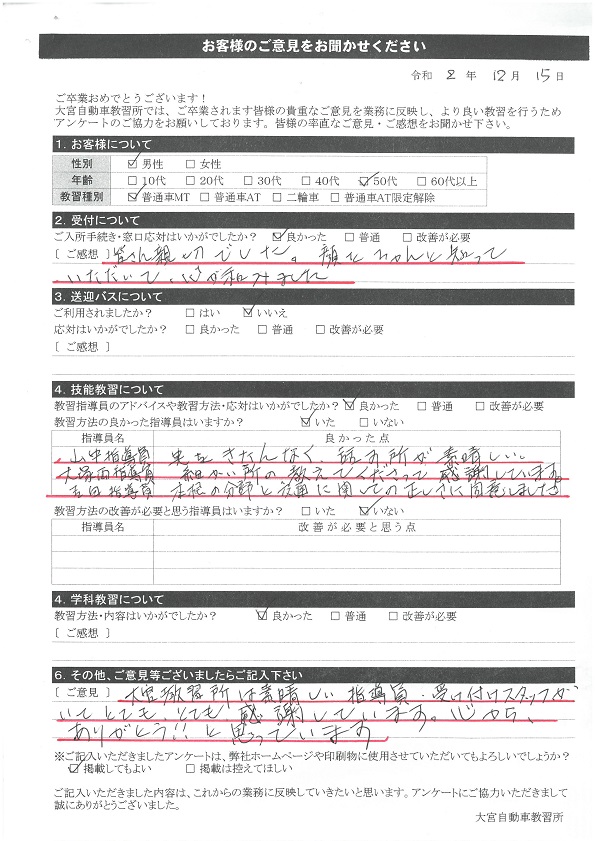 お客様のご意見をお聞かせください
令和 2 年 12 月 15 日
ご卒業おめでとうございます！
大宮自動車教習所では、ご卒業されます皆様の貴重なご意見を業務に反映し、より良い教習を行うため
アンケートのご協力をお願いしております。皆様の率直なご意見・ご感想をお聞かせ下さい。
1. お客様について
性別 ☑ 男性 □ 女性
年齢 □ 10代 □ 20代 □ 30代 □ 40代 ☑ 50代 □ 60代以上
教習種別 ☑ 普通車MT □ 普通車AT □ 二輪車 □ 普通車AT限定解除
2. 受付について
ご入所手続き・窓口応対はいかがでしたか？ ☑ 良かった □ 普通 □ 改善が必要
[ ご感想 ] 皆さん親切でした。顔をちゃんと知って
いただいて、心が和みました
3. 送迎バスについて
ご利用されましたか？ □ はい ☑ いいえ
応対はいかがでしたか？ □ 良かった □ 普通 □ 改善が必要
[ ご感想 ]
4. 技能教習について
教習指導員のアドバイスや教習方法・応対はいかがでしたか？ ☑ 良かった □ 普通 □ 改善が必要
教習方法の良かった指導員はいますか？ ☑ いた □ いない
指導員名 良かった点
山中指導員 きたんなく 所が素晴しい。
大塚 指導員 細かい所の教えてくださって感謝しています。
吉田指導員 の分野と に関しての正しさに同意しました
教習方法の改善が必要と思う指導員はいますか？ □ いた ☑ いない
指導員名 改善が必要と思う点
4. 学科教習について
教習方法・内容はいかがでしたか？ ☑ 良かった □ 普通 □ 改善が必要
[ ご感想 ]
6. その他、ご意見等ございましたらご記入下さい
[ ご意見 ] 大宮教習所は素晴しい指導員・受け付けスタッフが
いてとても、とても感謝しています。心から、
ありがとう!! と思っています
※ご記入いただきましたアンケートは、弊社ホームページや印刷物に使用させていただいてもよろしいでしょうか？
☑ 掲載してもよい □ 掲載は控えてほしい
ご記入いただきました内容は、これからの業務に反映していきたいと思います。アンケートにご協力いただきまして
誠にありがとうございました。
大宮自動車教習所